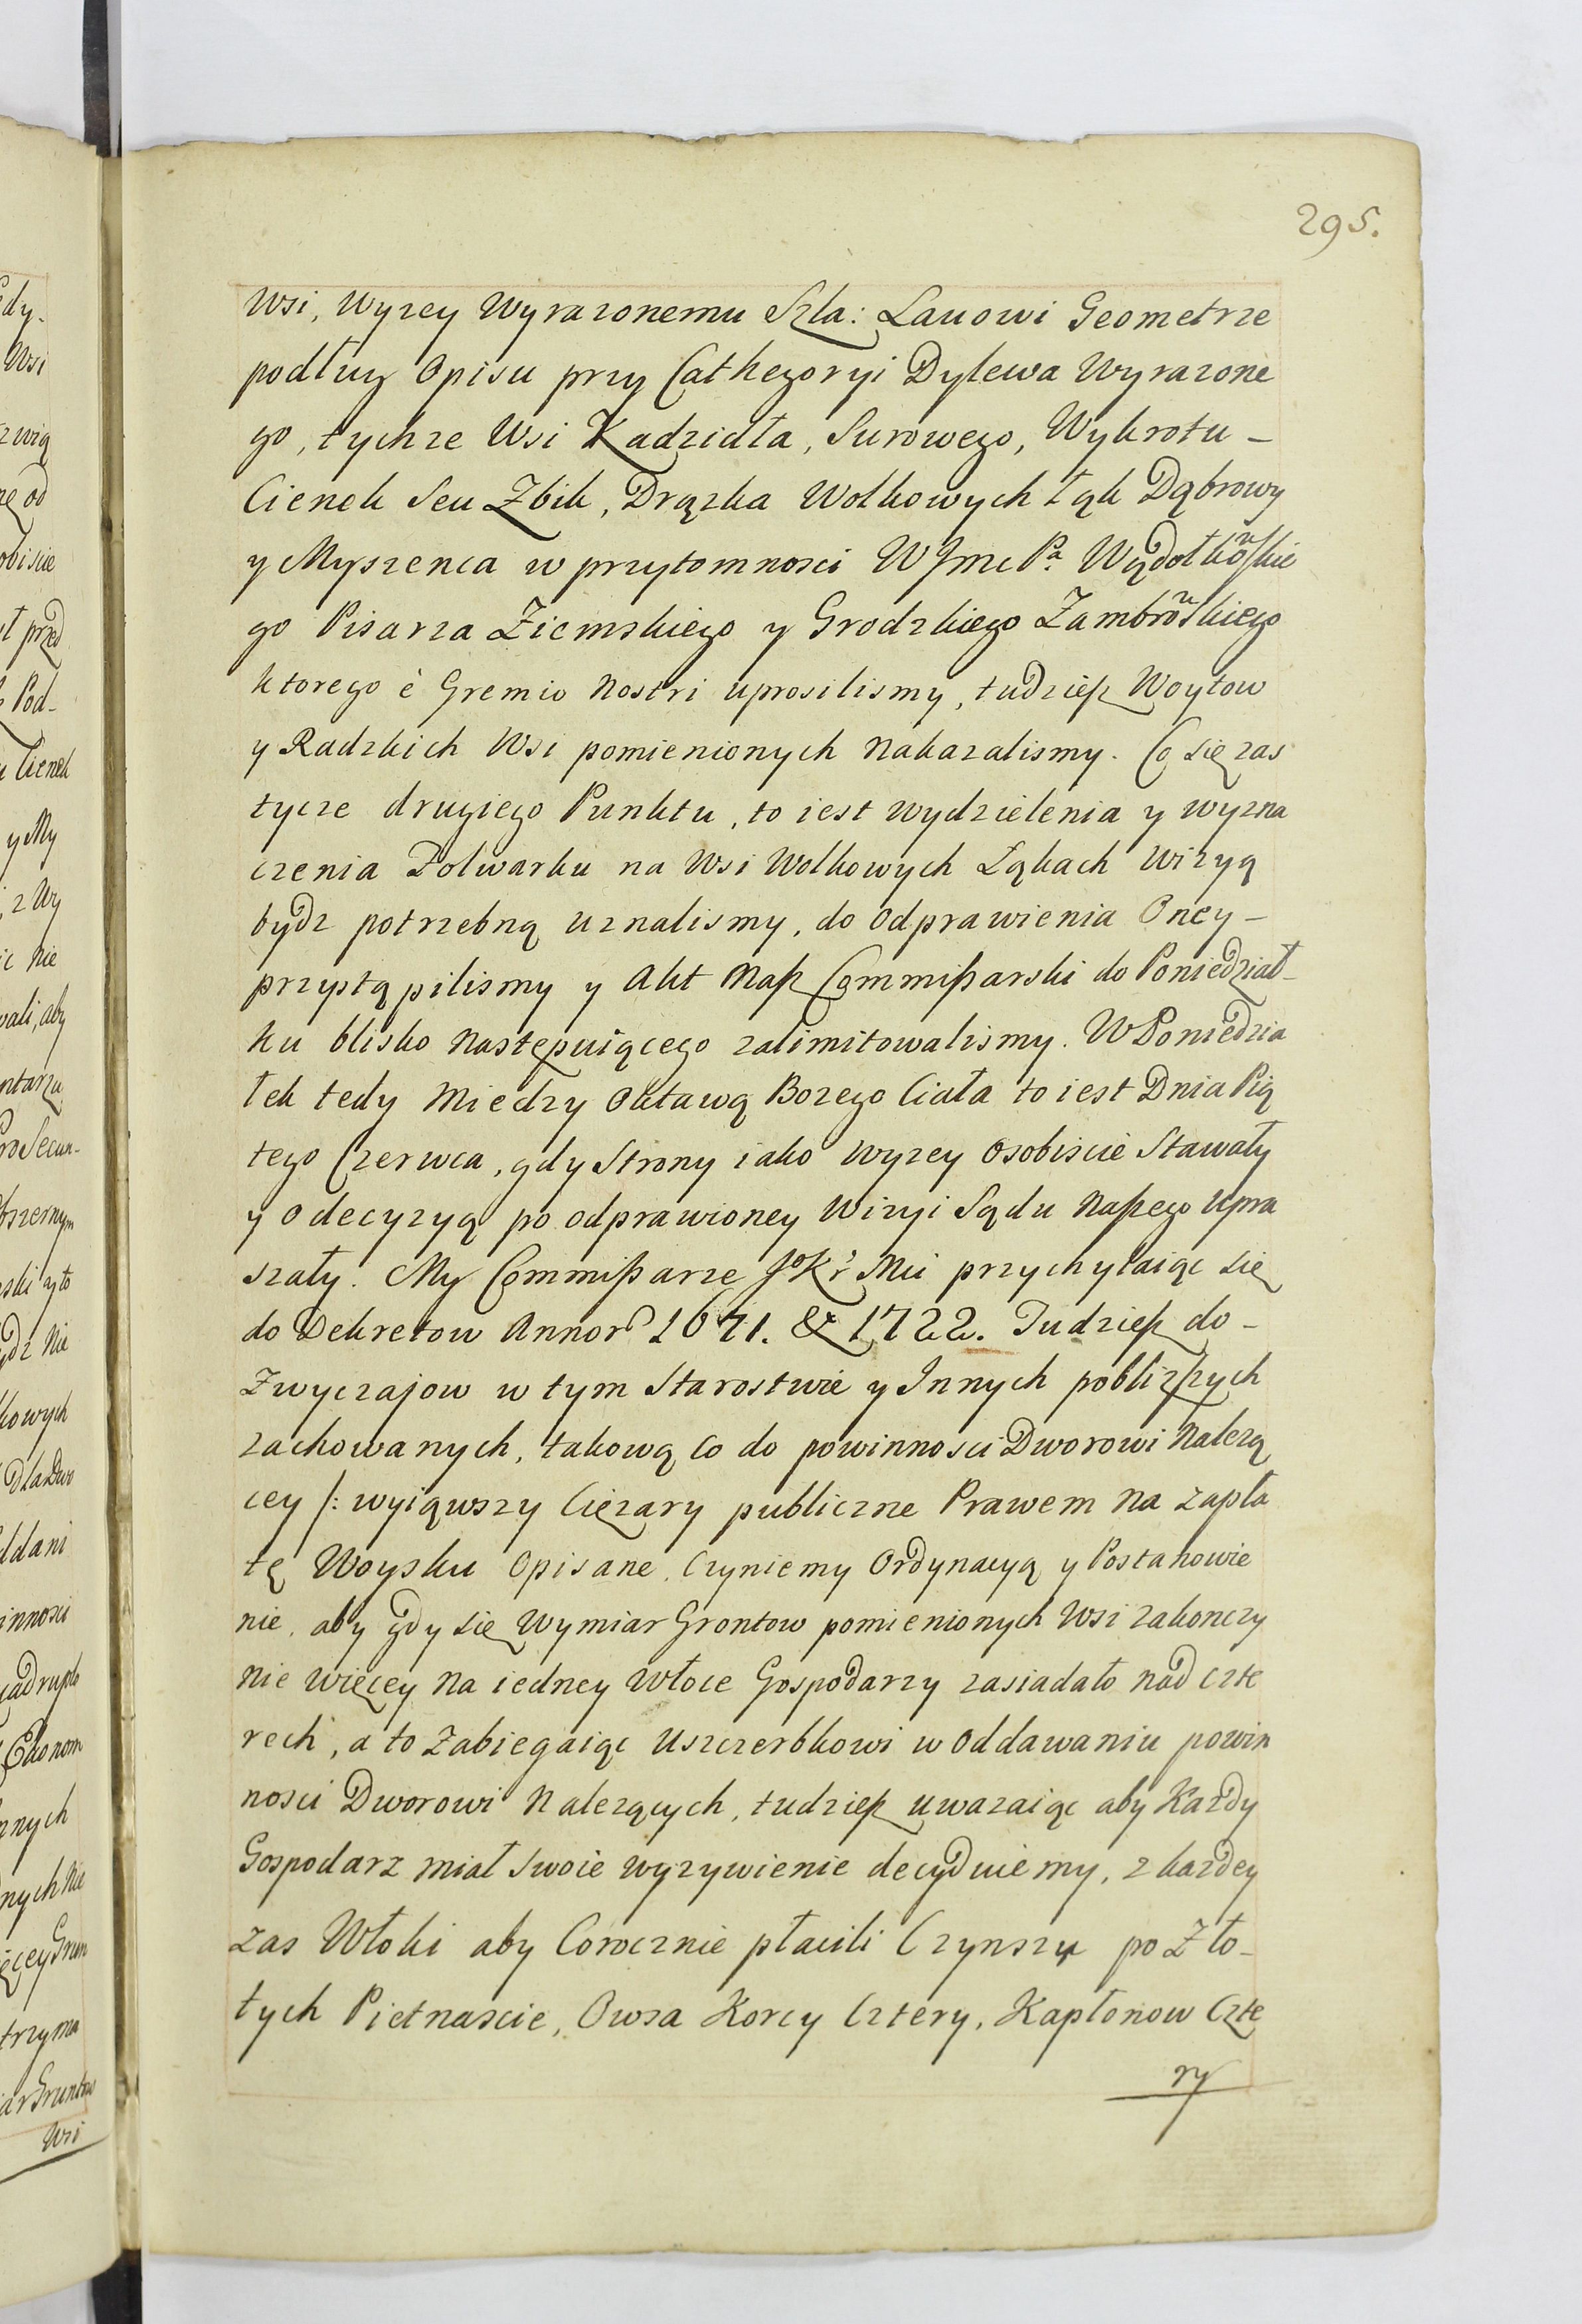 295.
Wsi, Wyzey Wyrazonemu Szla: Lauowi Geometrze
podług Opisu przy Cathegoryi Dylewa Wyrazone
go, tychze Wsi Kadzidła, Surowego, Wykrotu -
Cienek Seu Zbik, Drązka Wolkowych Łąk Dąbrowy
y Myszenca w przytomnosci WJmc Pa Wądołkoskie
go Pisarza Ziemskiego y Grodzkiego Zambroskiego
ktorego è Gremio Nostri uprosilismy, tudzież Woytow
y Radzkich Wsi pomienionych Nakazalismy. Co się zas
tycze drugiego Punktu, to iest wydzielenia y wyzna
czenia Folwarku na Wsi Wolkowych Łąkach Wizyą
bydz potrzebną uznalismy, do Odprawienia Oney -
przystąpilismy y Akt Naß Commißarski do Poniedział-
ku blisko Następuiącego zalimitowalismy. W Poniedzia
łek tedy Miedzy Oktawą Bozego Ciała to iest Dnia Pią
tego Czerwca, gdy Strony iako wyzey Osobiscie Stawały
y o decyzyą po odprawioney Wizyi Sądu Naßego Upra
szały. My Commißarze JoKr Mci przychylaiąc się
do Dekretow Annor 1671. & 1722. Tudzieß do -
Zwyczajow w tym Starostwie y Innych poblizßych
zachowanych, takową co do powinnosci Dworowi Nalezą
cey /: wyiąwszy Cięzary publiczne Prawem na zapła
tę Woysku Opisane, Czyniemy Ordynacyą y Postanowie
nie, aby gdy się Wymiar Grontow pomienionych Wsi zakonczy
Nie więcey Na iedney Włoce Gospodarzy zasiadało nad czte
rech, a to Zabiegaiąc Uszczerbkowi w Oddawaniu powin
nosci Dworowi Nalezących, tudzieß uwazaiąc aby Każdy
Gospodarz miał Swoie wyzywienie decyduiemy, z kazdey
zas Włoki aby Corocznie płacili Czynszu po Zło-
tych Pietnascie, Owsa Korcy Cztery, Kapłonow Czte
ry